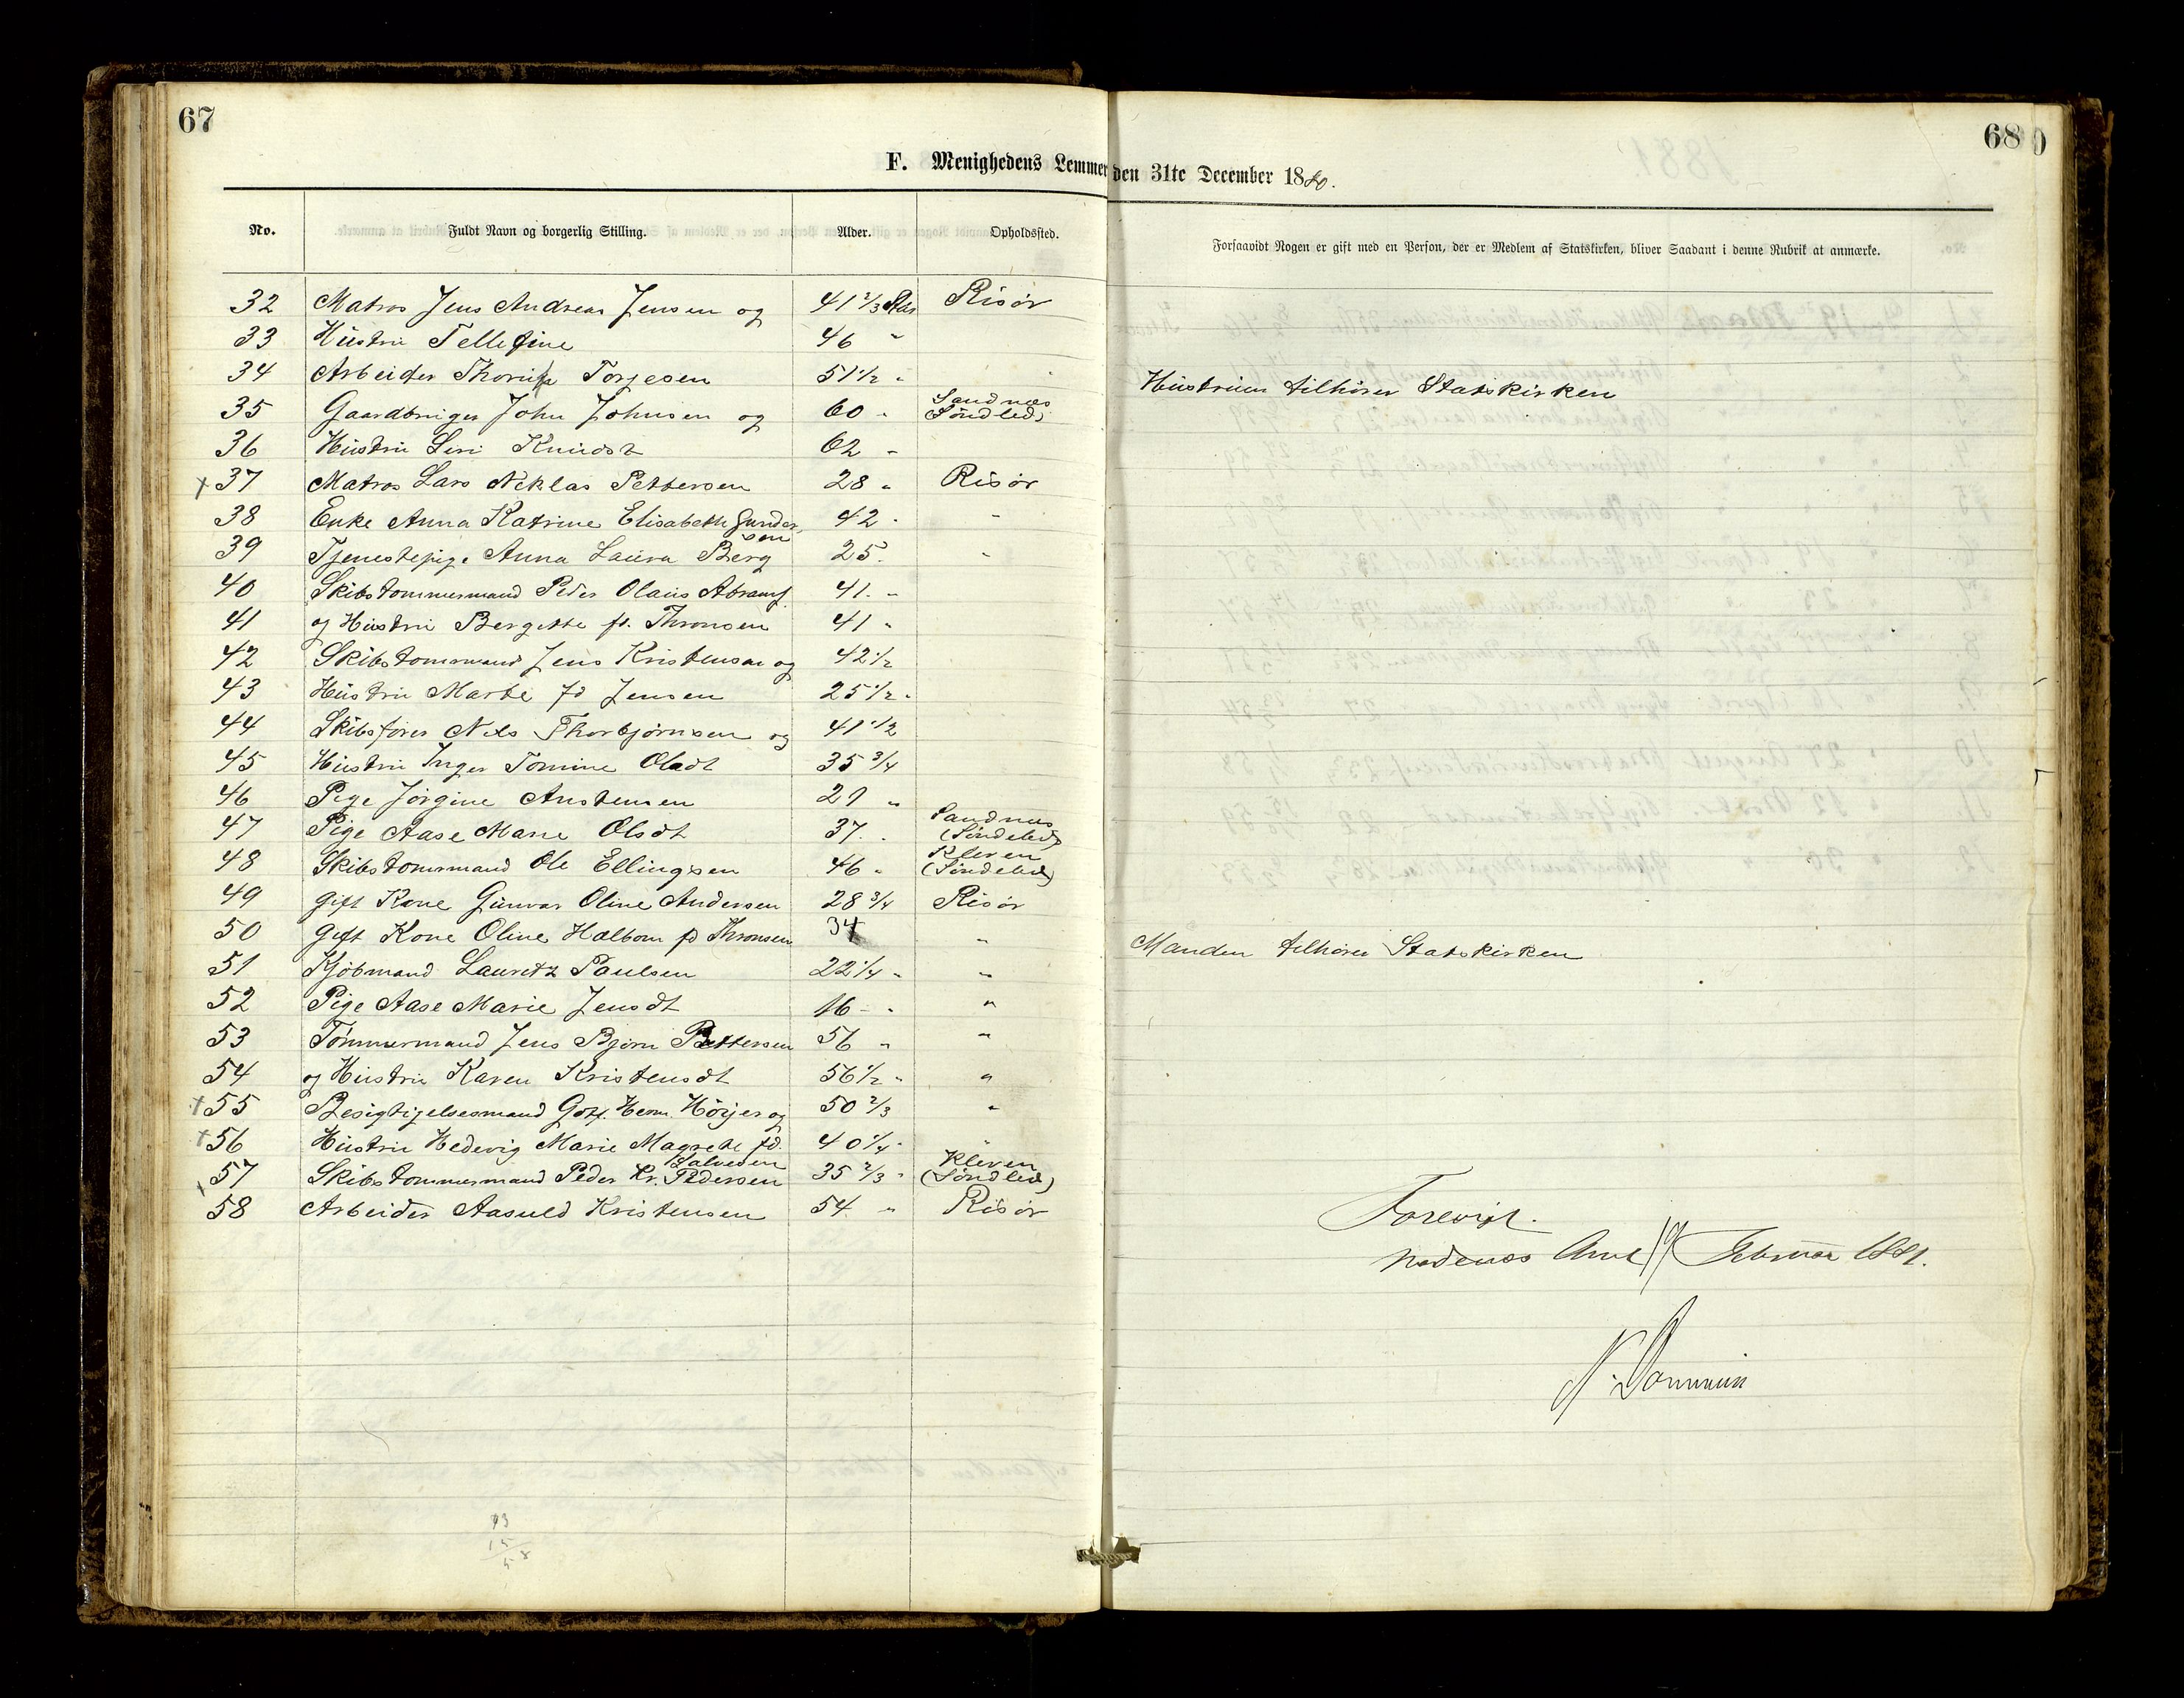 67
68
F. Menighedens Lemmer den 31te December 1880.
No. Fuldt Navn og borgerlig Stilling. Alder. Opholdssted. Forsaavidt Nogen er gift med en Person, der er Medlem af Statskirken, bliver Saadant i denne Rubrik at anmærke.
32 Matros Jens Andreas Jensen og 41 2/3 Aar Risør
33 Hustru Tellefine 46 "
34 Arbeider Torjesen 51 1/2 " " Hustruen tilhører Statskirken
35 Gaardbruger John Johnsen og 60 " Sandnæs (Søndled)
36 Hustru Siri Knudsdt 62 "
+ 37 Matros Lars Niklas Pettersen 28 " Risør
38 Enke Anna Katrine Elisabeth Gundersen 42 " "
39 Tjenestepige Anna Laura Berg 25 " "
40 Skibstømmermand Peder Olaus Abrams. 41 "
41 og Hustru Bergitte fd. Thronsen 41 "
42 Skibstømmermand Jens Kristensen og 42 1/2
43 Hustru Marte fd Jensen 25 1/2 "
44 Skibsfører Nils Thorbjørnsen og 41 1/2
45 Hustru Inger Tomine Olsdt 35 3/4
46 Pige Jørgine Anstensen 29 "
47 Pige Aase Marie Olsdt 37 " Sandnæs (Søndeled)
48 Skibstømmermand Ole Ellingsen 46 " Kleven (Søndeled)
49 gift Kone Gunvor Oline Andersen 28 3/4 Risør
50 gift Kone Oline Halbom fd Thronsen 34 " Manden tilhører Statskirken
51 Kjøbmand Lauritz Paulsen 22 1/4 " "
52 Pige Aase Marie Jensdt 16 " "
53 Tømmermand Jens Bjørn Pettersen 56 " "
54 og Hustru Karen Kristensdt 56 1/2 " "
+ 55 Besigtigelsesmand Herm. Höijer og 50 2/3 "
+ 56 Hustru Hedevig Marie Magrete fd. Salvesen 40 1/4 " "
+ 57 Skibstømmermand Peder Kr. Pedersen 35 2/3 " Kleven (Søndled)
58 Arbeider Aasuld Kristensen 54 " Risør
Forevist.
Nedenæs Amt Februar 1881.